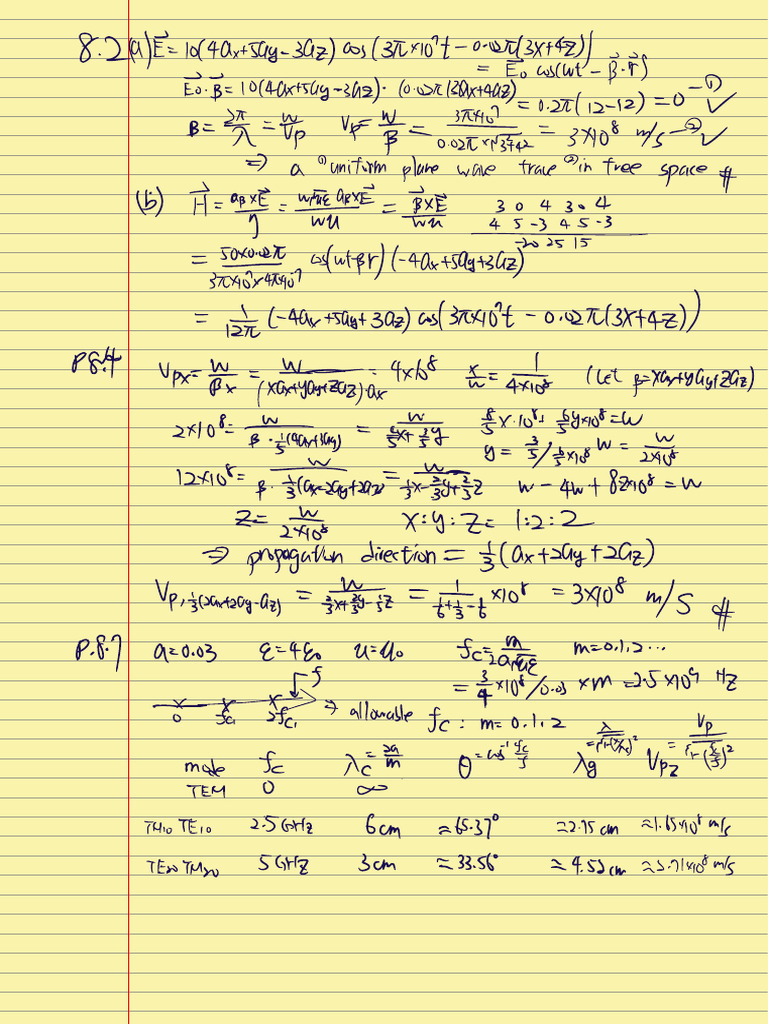 8.2 (a) E⃗ = 10(4ax+5ay-3az) cos(3π×10⁷t - 0.02π(3x+4z))
= E⃗₀ cos(wt - β⃗·r⃗)
E⃗₀·β⃗ = 10(4ax+5ay-3az)·(0.02π(3ax+4az)) = 0.2π(12-12) = 0 -① ✓
β = 2π/λ = w/Vp Vp = w/β = 3π×10⁷/(0.02π×√3²+4²) = 3×10⁸ m/s -② ✓
⇒ a ①uniform plane wave trave ②in free space #
(b) H⃗ = aβ×E⃗/η = w√με aβ×E⃗/wu = β⃗×E⃗/wu
3 0 4 3 0 4
4 5 -3 4 5 -3
-20 25 15
= 50×0.02π/(3π×10⁷×4π×10⁻⁷) cos(wt-βr)(-4ax+5ay+3az)
= 1/12π (-4ax+5ay+3az) cos(3π×10⁷t - 0.02π(3x+4z))
P8.4 Vpx = w/βx = w/((xax+yay+zaz)·ax) = 4×10⁸ x/w = 1/(4×10⁸) (let β=xax+yay+zaz)
2×10⁸ = w/(β·1/5(4ax+3ay)) = w/(4/5x+3/5y) 8/5x·10⁸+6/5y×10⁸=w
y = 3/5/6/5×10⁸ w = w/(2×10⁸)
12×10⁸ = w/(β·1/3(ax-2ay+2az)) = w/(1/3x-2/3y+2/3z) w-4w+8z×10⁸=w
z = w/(2×10⁸) x:y:z = 1:2:2
⇒ propagation direction = 1/3(ax+2ay+2az)
Vp,1/3(2ax+2ay-az) = w/(2/3x+2/3y-1/3z) = 1/(1/6+1/3-1/6) ×10⁸ = 3×10⁸ m/s #
P.8.7 a=0.03 ε=4ε₀ u=u₀ fc = m/(2a√με) m=0,1,2...
= 3/4×10⁸/0.03 ×m = 2.5×10⁹ Hz
f
0 fc₁ 2fc₁ ⇒ allowable fc : m=0,1,2
mode fc λc = 2a/m θ = cos⁻¹ fc/f λg = λ/√1-(λ/λc)² Vpz = Vp/√1-(fc/f)²
TEM 0 ∞
TM10 TE10 2.5GHz 6cm ≈65.37° ≈2.75cm ≈1.65×10⁸ m/s
TE20 TM20 5GHz 3cm ≈33.56° ≈4.52cm ≈2.71×10⁸ m/s